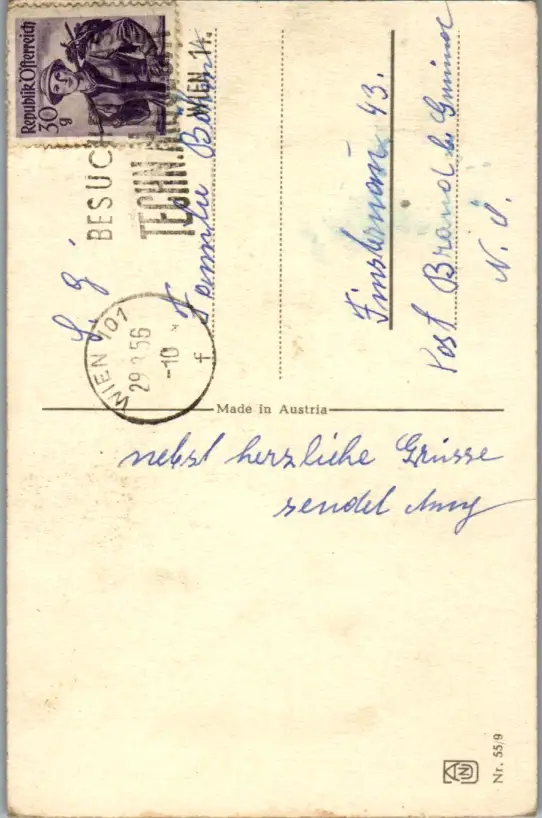 Republik Österreich
30 g
BESUCH
TECHN.
WIEN 14.
WIEN 101
29. 56
-10
f
L. g.
Familie
Finsternau 43.
Post Brand b. Gmünd
N. Ö.
Made in Austria
nebst herzliche Grüsse
sendet
Nr. 55/9